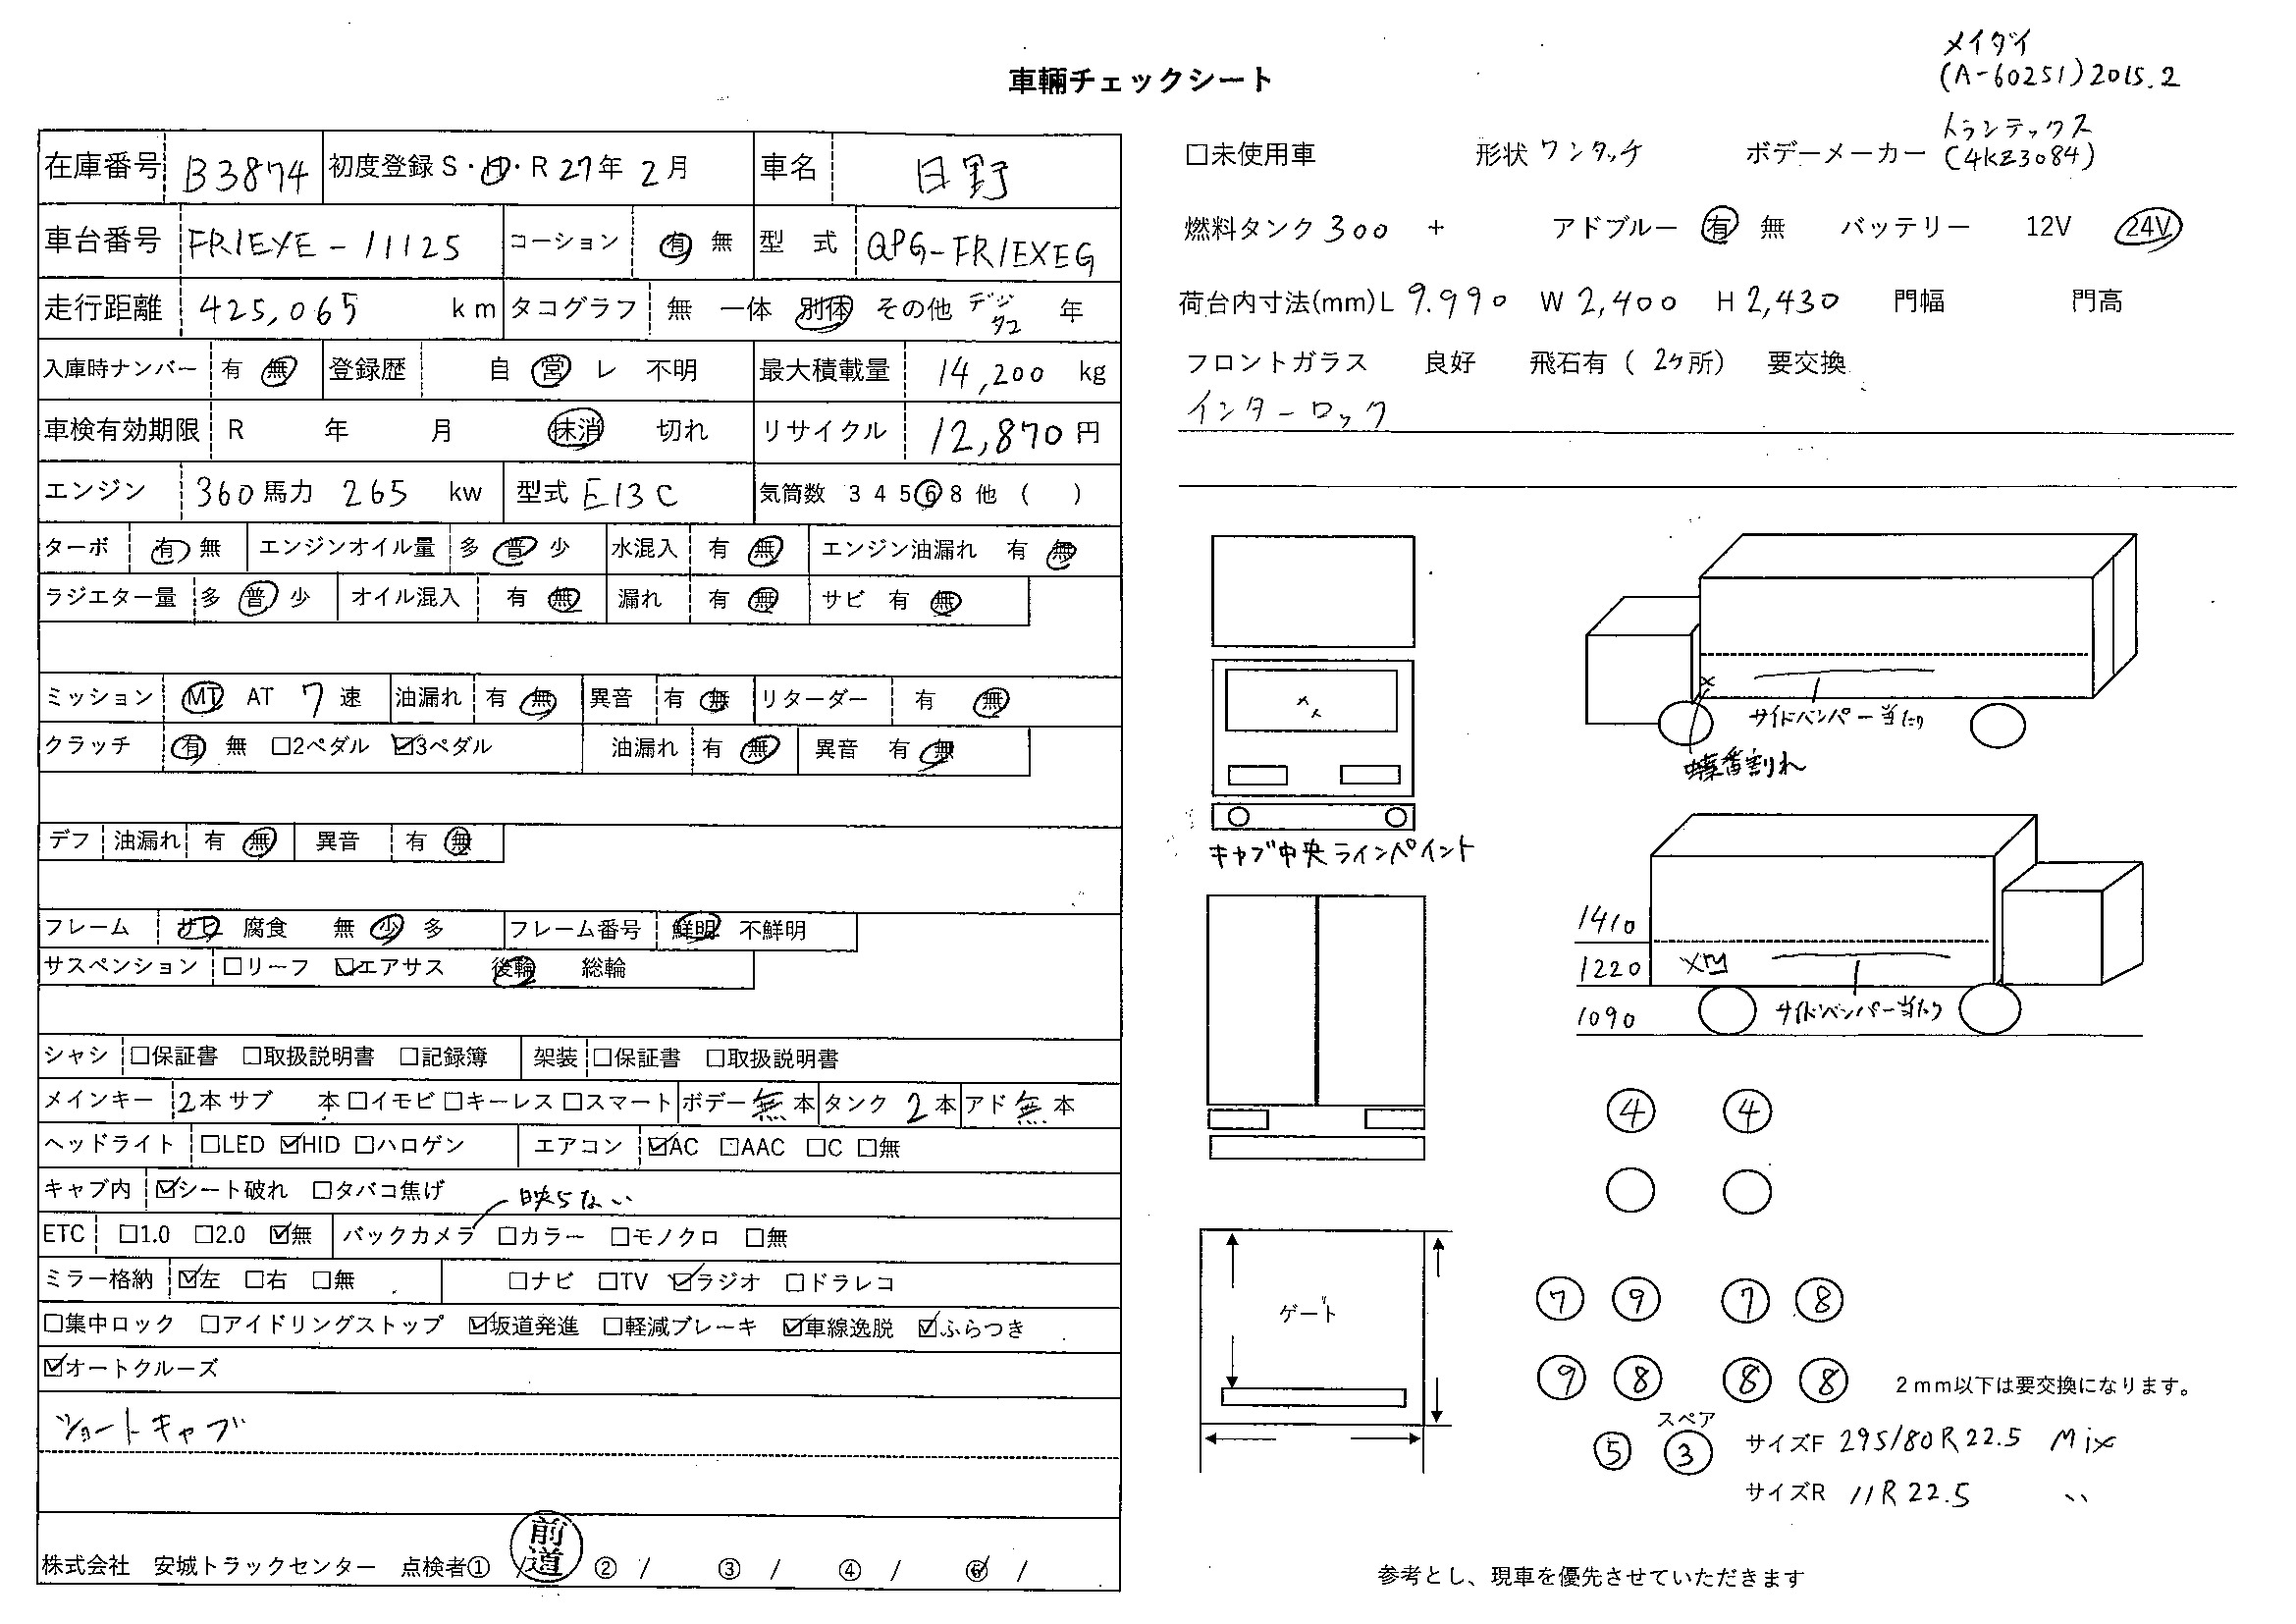 車輛チェックシート
メイダイ
(A-60251) 2015.2
在庫番号 B3874 初度登録 S・H・R 27年 2月 車名 日野
車台番号 FR1EXE-11125 コーション 有 無 型 式 QPG-FR1EXEG
走行距離 425,065 km タコグラフ 無 一体 別体 その他 デジタコ 年
入庫時ナンバー 有 無 登録歴 自 営 レ 不明 最大積載量 14,200 kg
車検有効期限 R 年 月 抹消 切れ リサイクル 12,870円
エンジン 360馬力 265 kw 型式 E13C 気筒数 3 4 5 6 8 他 ( )
ターボ 有 無 エンジンオイル量 多 普 少 水混入 有 無 エンジン油漏れ 有 無
ラジエター量 多 普 少 オイル混入 有 無 漏れ 有 無 サビ 有 無
ミッション MT AT 7 速 油漏れ 有 無 異音 有 無 リターダー 有 無
クラッチ 有 無 □2ペダル ☑3ペダル 油漏れ 有 無 異音 有 無
デフ 油漏れ 有 無 異音 有 無
フレーム サビ 腐食 無 少 多 フレーム番号 鮮明 不鮮明
サスペンション □リーフ ☑エアサス 後輪 総輪
シャシ □保証書 □取扱説明書 □記録簿 架装 □保証書 □取扱説明書
メインキー 2本 サブ 本 □イモビ □キーレス □スマート ボデー 無 本 タンク 2 本 アド 無 本
ヘッドライト □LED ☑HID □ハロゲン エアコン ☑AC □AAC □C □無
キャブ内 ☑シート破れ □タバコ焦げ
映らない
ETC □1.0 □2.0 ☑無 バックカメラ □カラー □モノクロ □無
ミラー格納 ☑左 □右 □無 □ナビ □TV ☑ラジオ □ドラレコ
□集中ロック □アイドリングストップ ☑坂道発進 □軽減ブレーキ ☑車線逸脱 ☑ふらつき
☑オートクルーズ
ショートキャブ
株式会社 安城トラックセンター 点検者① / 前道 ② / ③ / ④ / ⑤ /
□未使用車 形状 ワンタッチ ボデーメーカー トランテックス (4KZ3084)
燃料タンク 300 + アドブルー 有 無 バッテリー 12V 24V
荷台内寸法(mm) L 9.990 W 2,400 H 2,430 門幅 門高
フロントガラス 良好 飛石有 ( 2ヶ所) 要交換
インターロック
サイドバンパー当たり
蝶番割れ
キャブ中央ラインペイント
1410
1220
1090
サイドバンパー当たり
ゲート
④ ④
⑦ ⑨ ⑦ ⑧
⑨ ⑧ ⑧ ⑧
2mm以下は要交換になります。
スペア
⑤ ③ サイズF 295/80R22.5 Mix
サイズR 11R22.5 〃
参考とし、現車を優先させていただきます